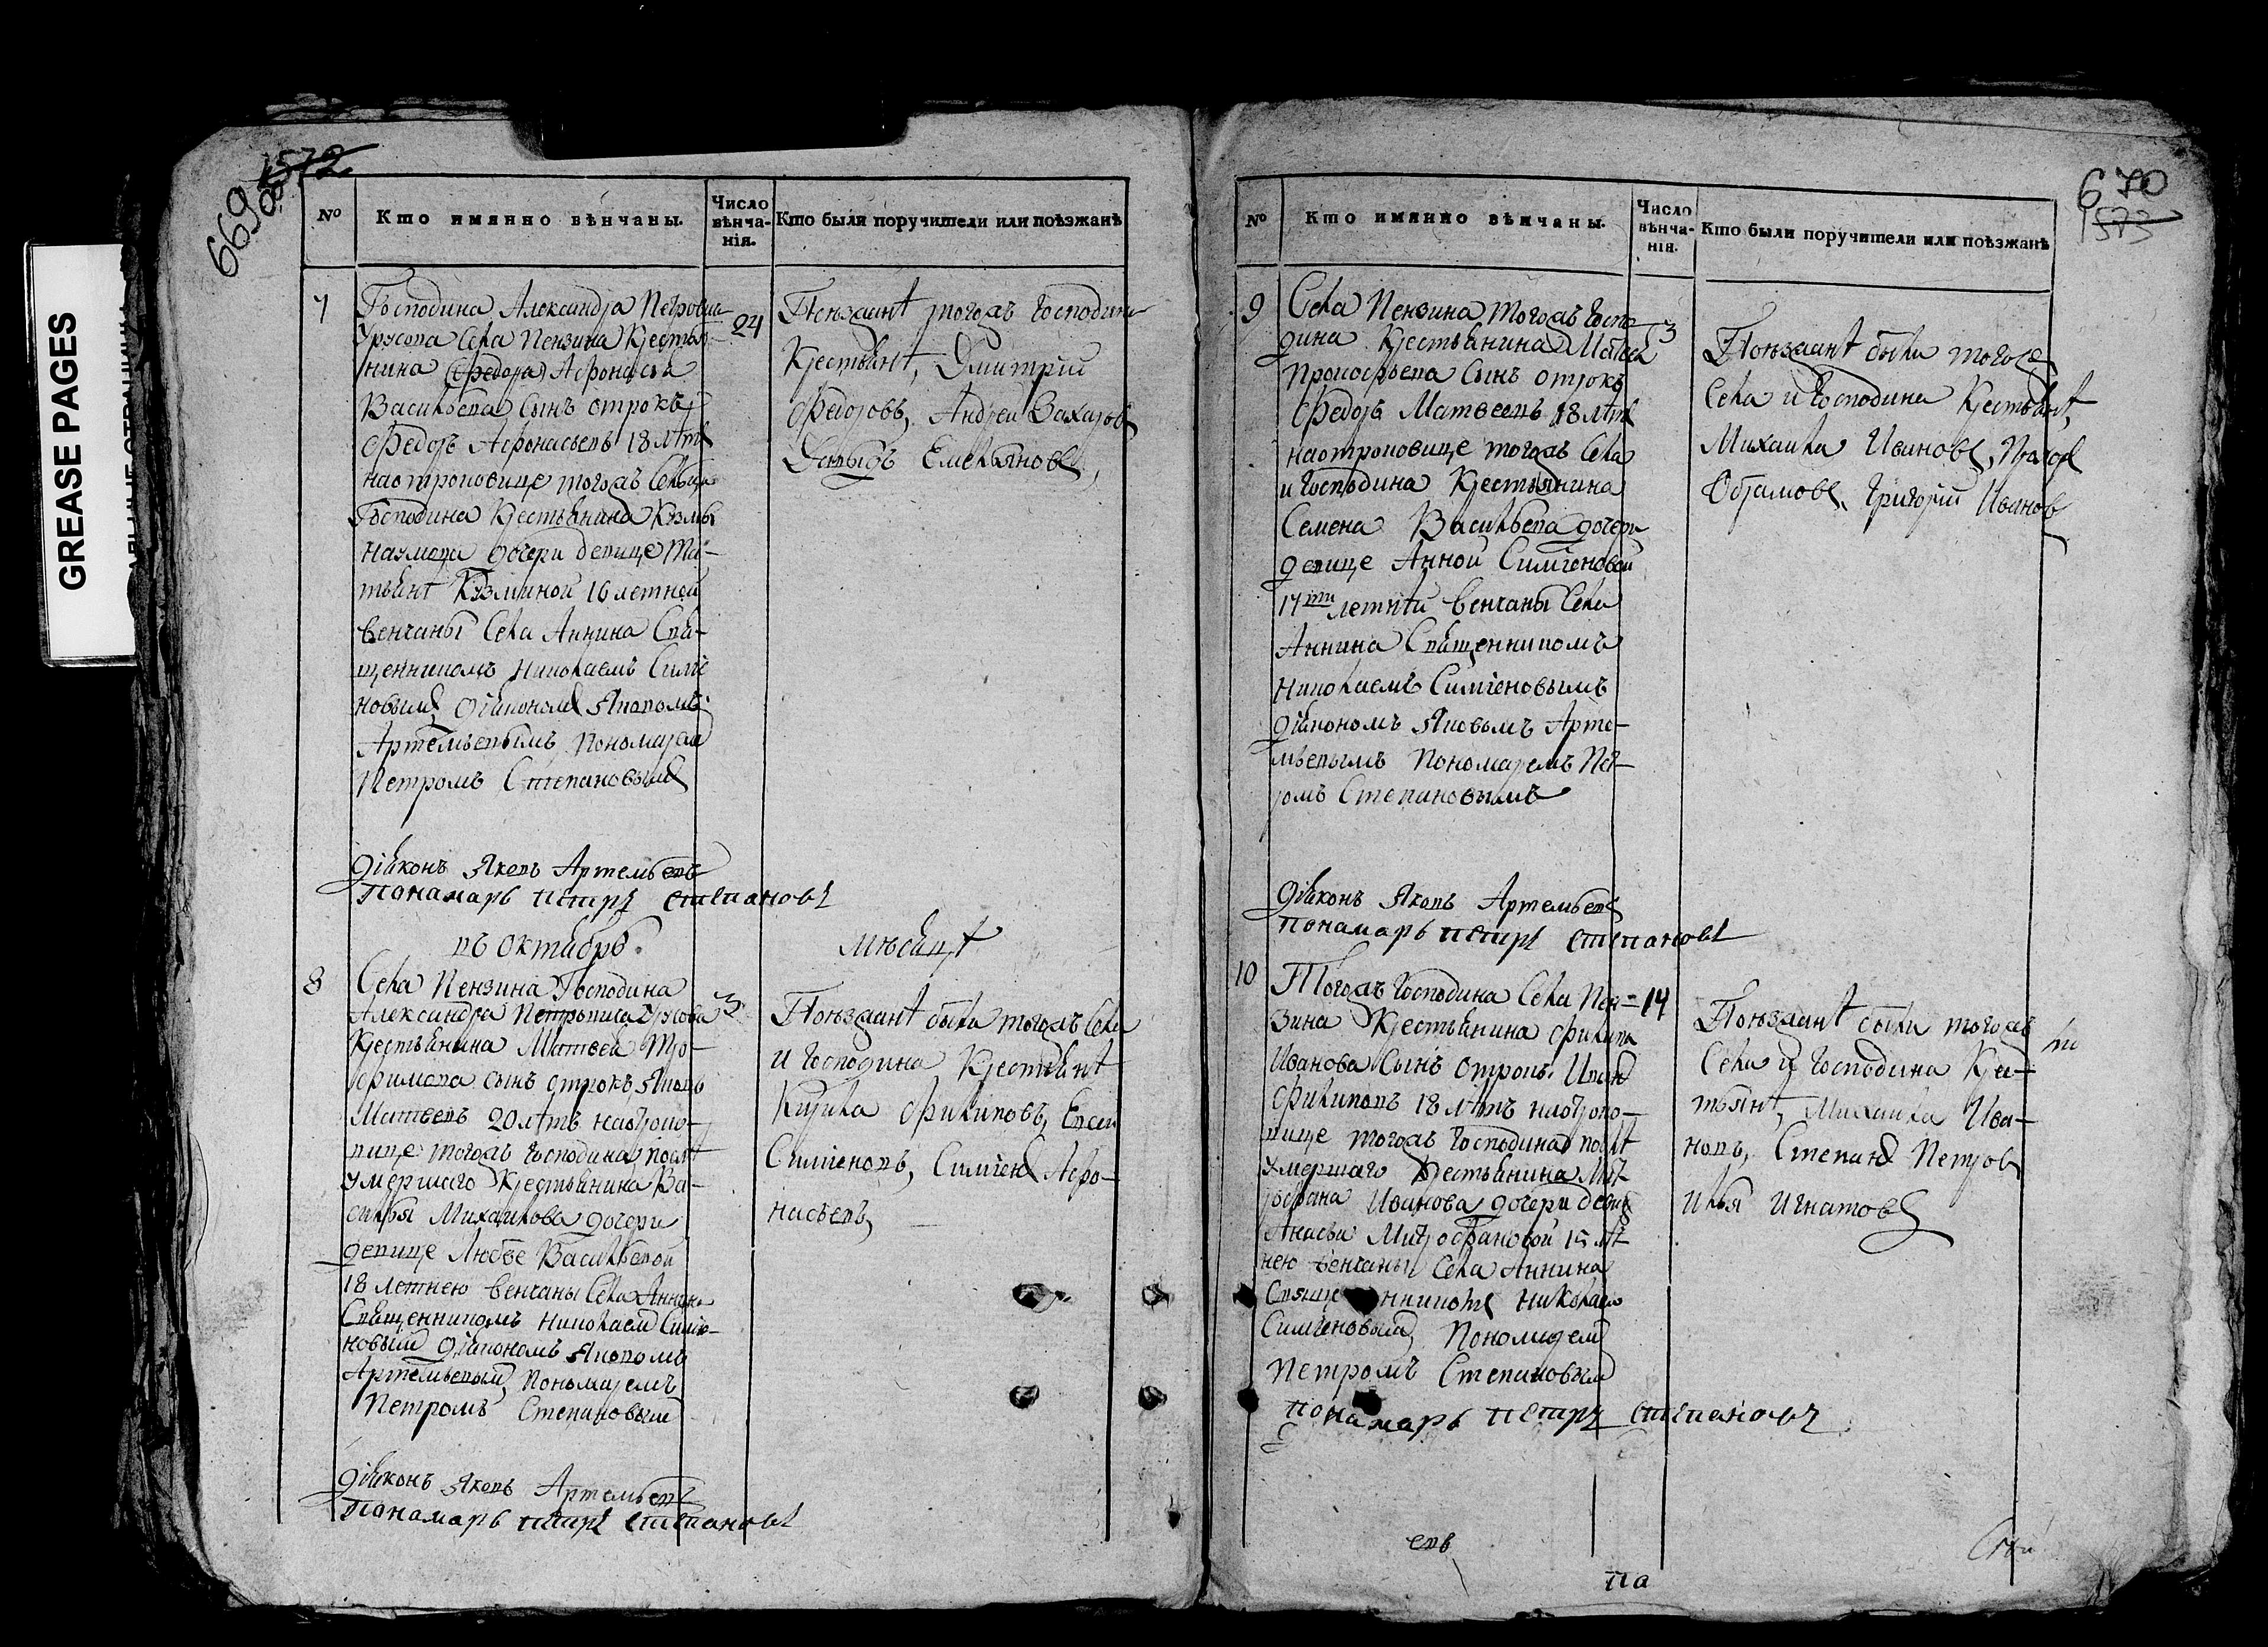 GREASE PAGES
1572
669 об
№
Кто имянно вѣнчаны.
Число вѣнча-нія.
Кто были поручители или поѣзжанѣ
7
Господина Александра Петровича
Урусова Села Пензина Крестья-
нина Афонасья
Васильева Сынъ отрокъ
Федоръ Афонасьевъ 18 лѣтъ
на отроковице тогожъ Села
Господина Крестьянина Кузмы
Наумова дочери девице Та-
тьянѣ Кузминой 16 летней
венчаны Села Аннина Свя-
щенникомъ Николаемъ Симіо
новымъ, діякономъ Яковомъ
Артемьевымъ Пономаремъ
Петромъ Степановымъ
24
Поѣзданѣ тогожъ господина
Крестьянѣ, Дмитрій
Федоровъ, Андрей Захаровъ
Давыдъ Емельяновъ,
діяконъ Яковъ Артемьевъ
Понамарь петръ степановъ
въ Октябрѣ
мѣсяцѣ
8
Села Пензина Господина
Александра Петровича Урусова
Крестьянина Матвея Тро-
фимова сынъ отрокъ Яковъ
Матвеевъ 20 лѣтъ на отроко-
вице тогожъ господина послѣ
умершаго Крестьянина Ва-
силья Михайлова дочери
девице Любве Васильевой
18 летнею венчаны Села Аннина
Священникомъ Николаем Симіо-
новым діякономъ Яковомъ
Артемьевым, Пономаремъ
Петромъ Степановым
3
Поѣзданѣ были тогожъ Села
и господина Крестьянѣ
Кирила Филиповъ, Евсей
Симіоновъ, Симіонъ Афо-
насьевъ,
діяконъ Яковъ Артемьевъ
Понамарь петръ степановъ
670
1573
№
Кто имянно вѣнчаны.
Число вѣнча-нія.
Кто были поручители или поѣзжанѣ
9
Села Пензина тогожъ госпо
дина Крестьянина Матвея
Прокофьева Сынъ отрокъ
Федоръ Матвеевъ 18 лѣтъ
на отроковице тогожъ Села
и господина Крестьянина
Семена Васильева дочери
девице Анной Симіоновой
17ти летнѣй венчаны Села
Аннина Священникомъ
Николаемъ Симіоновымъ
діякономъ Яковымъ Арте-
мьевымъ Пономаремъ Пет-
ромъ Степановымъ
3
Поѣзданѣ были тогожъ
Села и господина Крестьянѣ,
Михаила Ивановъ,
Обрамовъ, Григорій Ивановъ
діяконъ Яковъ Артемьевъ
понамарь петръ степановъ
10
Тогожъ господина Села Пен-
зина Крестьянина Филипа
Иванова Сынъ отрокъ Иванъ
Филиповъ 18 лѣтъ на отроко-
вице тогожъ господина послѣ
умершаго Крестьянина Мит-
рофана Иванова дочери девице
Митрофановой 15 лѣт-
нею венчаны Села Аннина
Священникомъ Николаемъ
Симіоновым, Пономарем
Петромъ Степановым
14
Поѣзданѣ были тогожъ
Села и господина Крес-
тьянѣ, Михаила Ива-
новъ, Степанъ Петровъ
Илья Игнатовъ
понамарь петръ степановъ
евъ
па